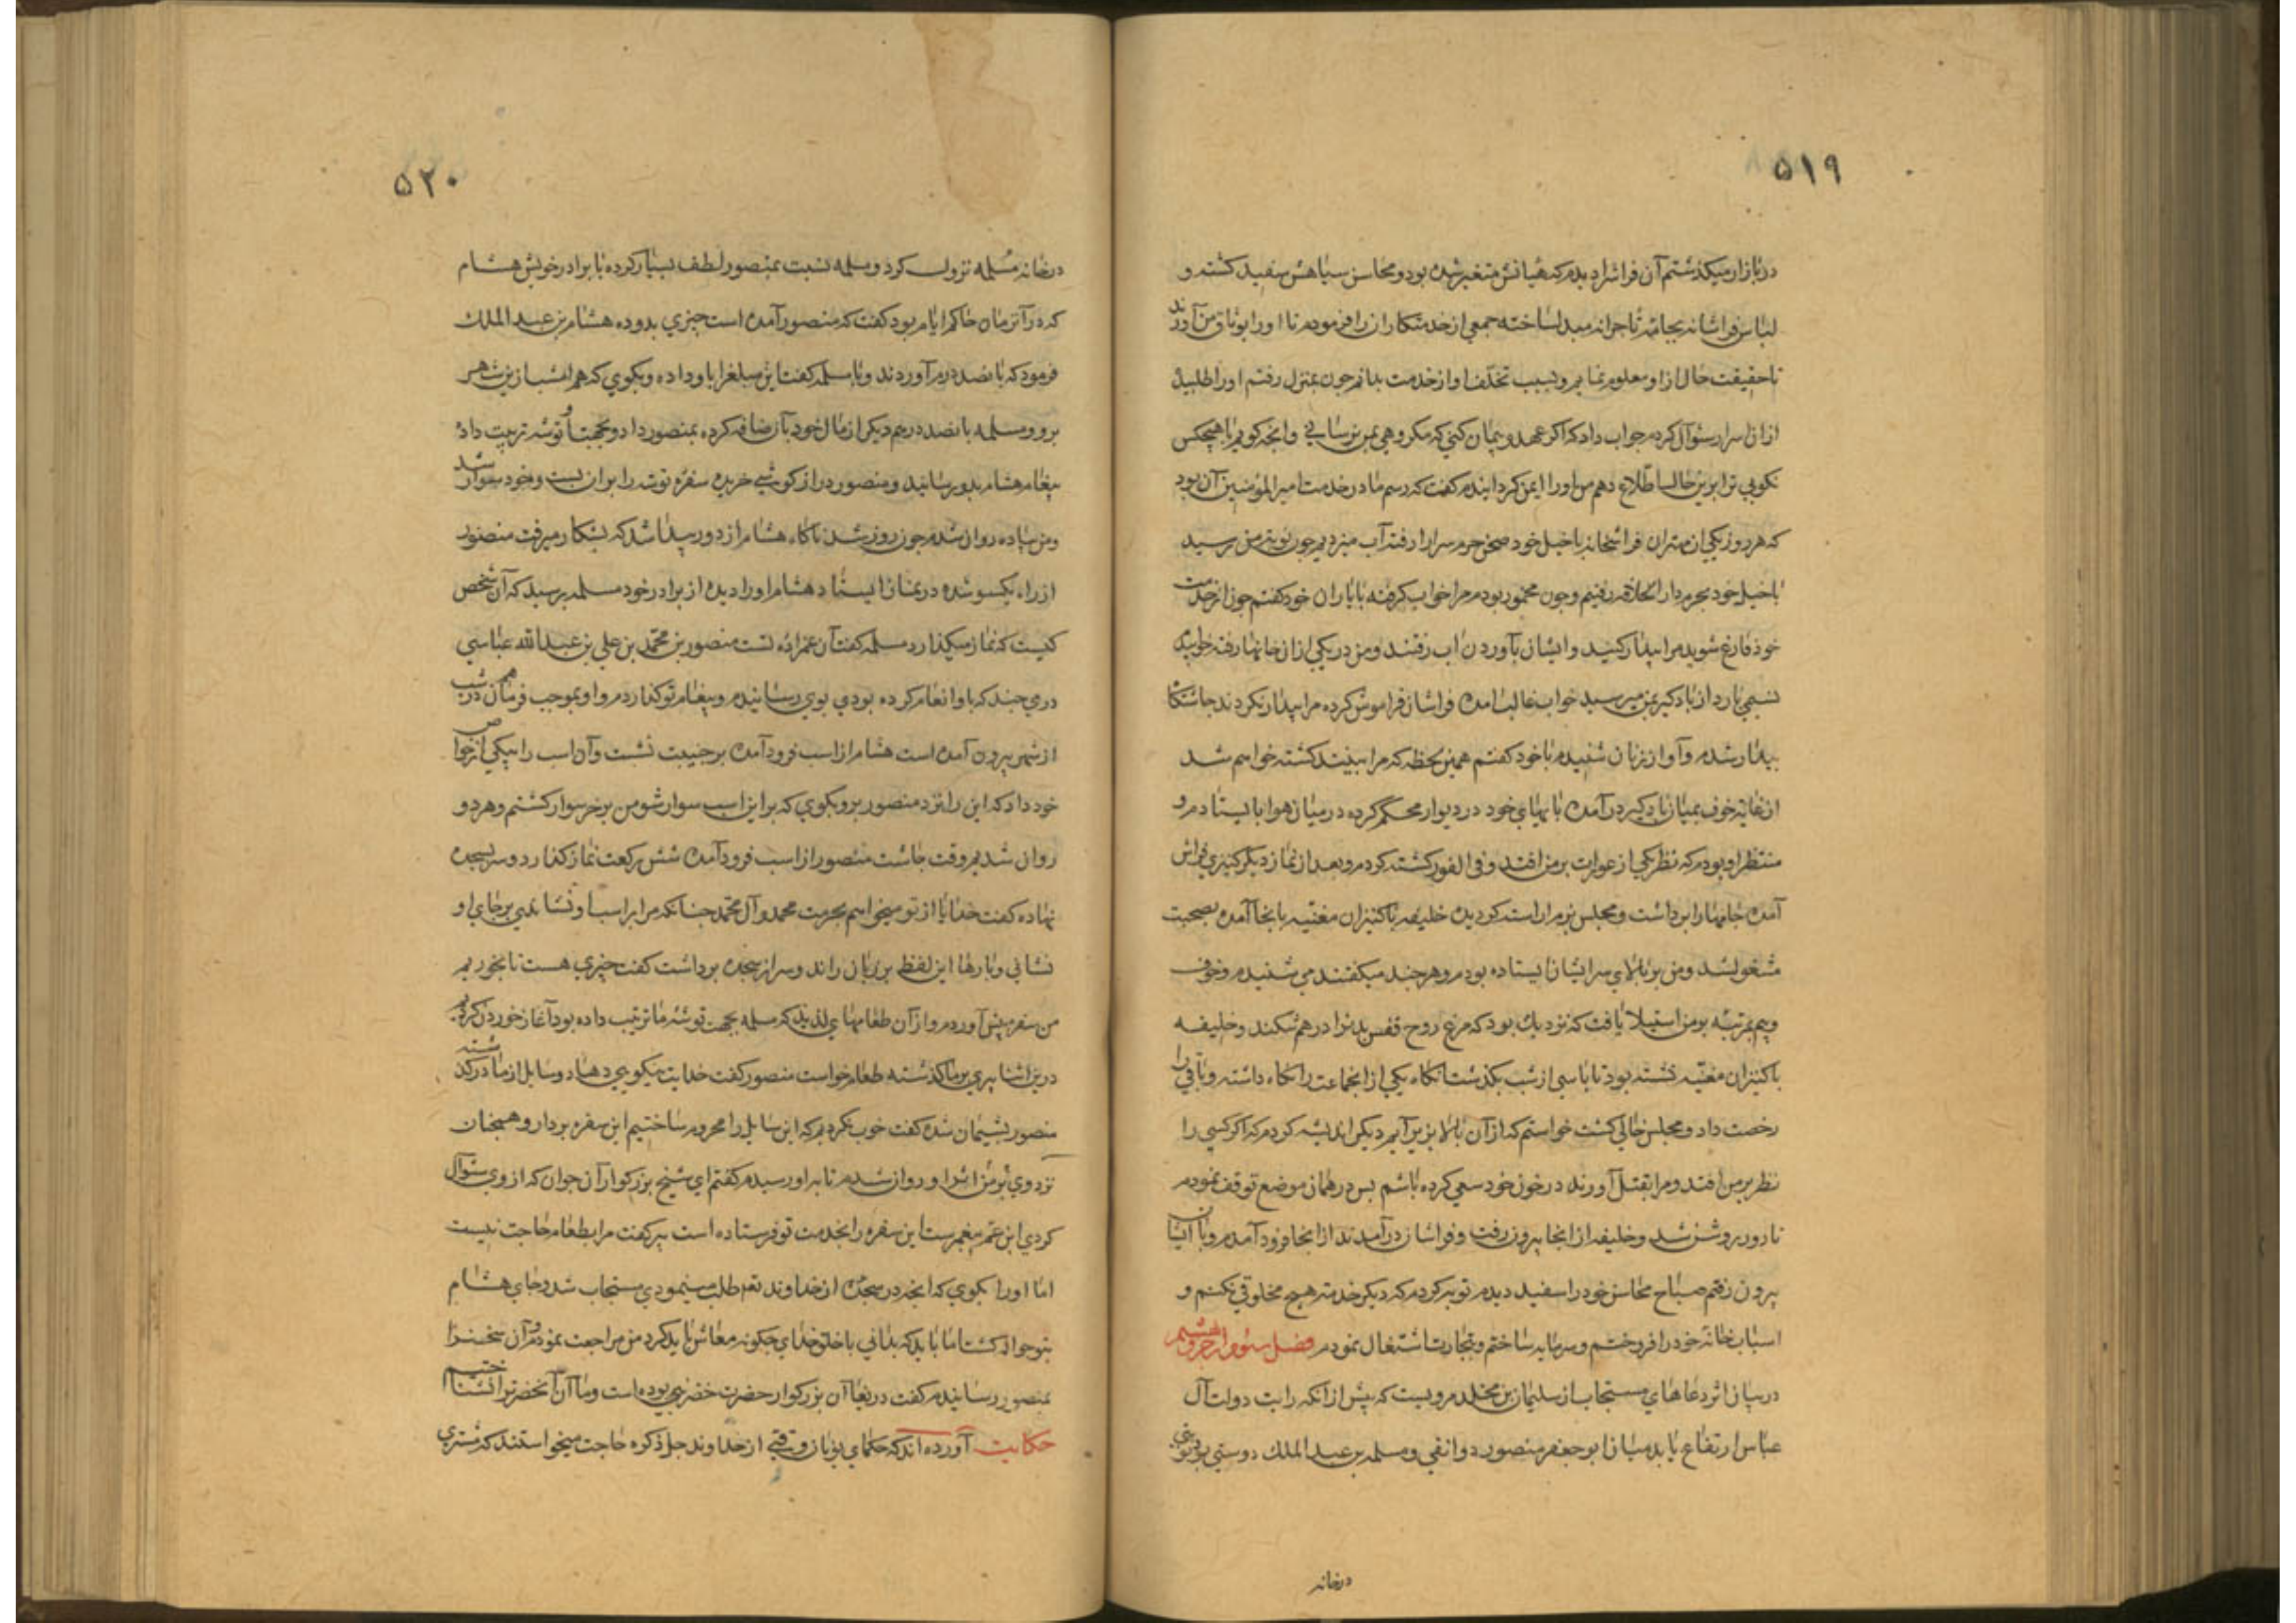 ۵۱۹
در بازار میکذشتم آن فراش را دیدم که هیاتش متغیر شده بود و محاسن سیاهش سفید کشته و
لباس فراشانه بجامهٔ تاجرانه مبدل ساخته جمعی از خدمتکاران را فرمودم تا او را بوثاق من آورند
تا حقیقت حال از او معلوم نمایم و سبب تخلّف او از خدمت بدانم چون بمنزل رفتم او را طلبیده
از آن اسرار سئوال کردم جواب داد که اکر عهد و پیمان کنی که مکروهی بمن نرسانی و آنچه کویم با هیچکس
نکویی ترا برین حال اطّلاع دهم من او را ایمن کردانیدم کفت که رسم ما در خدمت امیر المؤمنین آن بود
که هر روز یکی از مهتران فراشخانه با خیل خود صحن حرم سرا را رفته آب میزدیم چون نوبت من رسید
با خیل خود بحرم دار الخلافه رفتیم و چون مخمور بودم مرا خواب کرفته با یاران خود کفتم چون از خدمت
خود فارغ شوید مرا بیدار کنید و ایشان بآوردن اب رفتند و من در یکی از آن خانها رفته خوابیدم
نسیمی بارد از بادکیر بمن میرسید خواب غالب آمده فراشان فراموش کرده مرا بیدار نکردند چاشتکاه
بیدار شدم و آواز زنان شنیدم با خود کفتم همین لحظه که مرا ببینند کشته خواهم شد
از غایة خوف بمیان بادکیر درآمده پایهای خود در دیوار محکم کرده در میان هوا بایستادم و
منتظر او بودم که نظر یکی از عورات بر من افتد و فی الفور کشته کردم و بعد از نماز دیکر کنیزی فراش
آمده جامها را برداشت و مجلس بزم آراسته کردیده خلیفه با کنیزان مغنّیه بانجا آمده بصحبت
مشغول شد و من بر بالای سر ایشان ایستاده بودم و هر چند میکفتند می شنیدم و خوف
و بیم بمرتبه بر من استیلا یافت که نزدیک بود که مرغ روح قفس بدنرا در هم شکند و خلیفه
با کنیزان مغنّیه نشسته بود تا پاسی از شب بکذشت انکاه یکی از انجماعت را نکاه داشته و باقی را
رخصت داد و مجلس خالی کشت خواستم که از آن بالا بزیر آیم دیکر اندیشه کردم که اکر کسی را
نظر بر من افتد و مرا بقتل آورند در خون خود سعی کرده باشم پس در همان موضع توقف نمودم
تا روز روشن شد و خلیفه از انجا بیرون رفت و فراشان درآمدند از انجا فرود آمدم و با ایشان
بیرون رفتم صباح محاسن خود را سفید دیدم توبه کردم که دیکر خدمت هیچ مخلوقی نکنم و
اسباب خانهٔ خود را فروختم و سرمایه ساختم و بتجارت اشتغال نمودم فصل سئوم از حرف هشتم
در بیان اثر دعاهای مستجاب از سلیمان بن مخلد مرویست که پیش از آنکه رایت دولت آل
عباس ارتفاع یابد میان ابو جعفر منصور دوانقی و مسلمه بن عبد الملک دوستی بود
در خانه
۵۲۰
در خانهٔ مسلمه نزول کرد و مسلمه نسبت بمنصور لطف بسیار کرده با برادر خویش هشام
که در آنزمان حاکم ایام بود کفت که منصور آمده است چیزی بدو ده هشام بن عبد الملک
فرمود که پانصد درم آوردند و با مسلمه کفت این مبلغ را باو داده و بکوی که هم امشب ازین شهر
برو و مسلمه پانصد درهم دیکر از مال خود بآن ضافه کرده بمنصور داد و بجهت او توشه ترتیب داد
پیغام هشام بدو رسانید و منصور دراز کوشی خریده سفره توشه را بر ان بست و خود سوار شد
و من پیاده روان شدم چون روز شد ناکاه هشام از دور پیدا شد که بشکار میرفت منصور
از راه یکسو شده در نماز ایستاد هشام او را دیده از برادر خود مسلمه پرسید که آن شخص
کیست که نماز میکذارد مسلمه کفت آن عمزاده تست منصور بن محمّد بن علی بن عبد الله عباسی
درمی چند که باو انعام کرده بودی بوی رسانیدم و پیغام تو کذاردم و او بموجب فرمان هم در شب
از شهر بیرون آمده است هشام از اسب فرود آمده بر جنیبت نشست و آن اسب را بیکی از خواص
خود داد که این را نزد منصور بر و بکوی که بر این اسب سوار شو من بر خر سوار کشتم و هر دو
روان شدیم وقت چاشت منصور از اسب فرود آمده شش رکعت نماز کذارد و سر بسجده
نهاده کفت خدایا از تو میخواهم بحرمت محمد و آل محمّد چنانکه مرا بر اسب او نشاندی بر جای او
نشانی و بارها این لفظ بر زبان راند و سر از سجده برداشت کفت چیزی هست تا بخوریم
من سفره پیش آوردم و از آن طعامهای لذیذ که مسلمه بجهت توشه ما ترتیب داده بود آغاز خوردن کردیم
درین اثنا پیری بر ما کذشته طعام خواست منصور کفت خدایت نیکویی دهاد و سایل از ما در کذشته
منصور پشیمان شده کفت خوب نکردیم که این سایل را محروم ساختیم این سفره بردار و همچنان
نزد وی بر من از او روان شدم تا بر او رسیدم کفتم ای شیخ بزرکوار آن جوان که از وی سئوال
کردی ابن عم پیغمبرست این سفره را بخدمت تو فرستاده است پیر کفت مرا بطعام حاجت نیست
اما او را بکوی که انچه در سجده از خداوند تعم طلب مینمودی مستجاب شد و جای هشام
بتو حواله کشت اما باید که بدانی با خلق خدای چکونه معاش باید کرد من مراجعت نمودم و آن سخنرا
بمنصور رسانیدم کفت دریغا آن بزرکوار حضرت خضر بوده است و ما آن آنحضرترا نشناختیم
حکایت آورده اند که حکمای یونان وقتی از خداوند جل ذکره حاجت میخواستند که مشتری